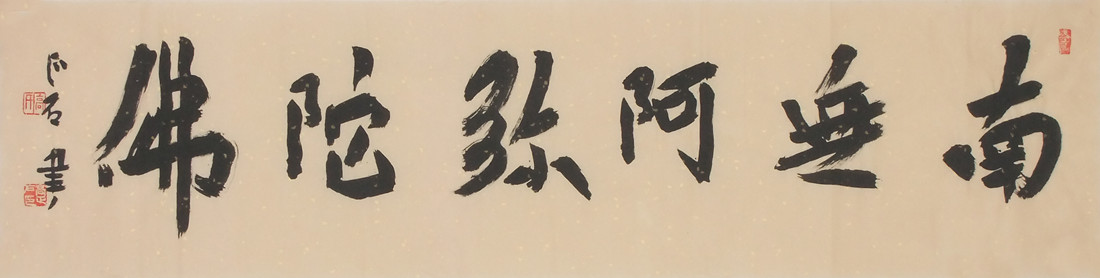 南無阿弥陀佛
石書